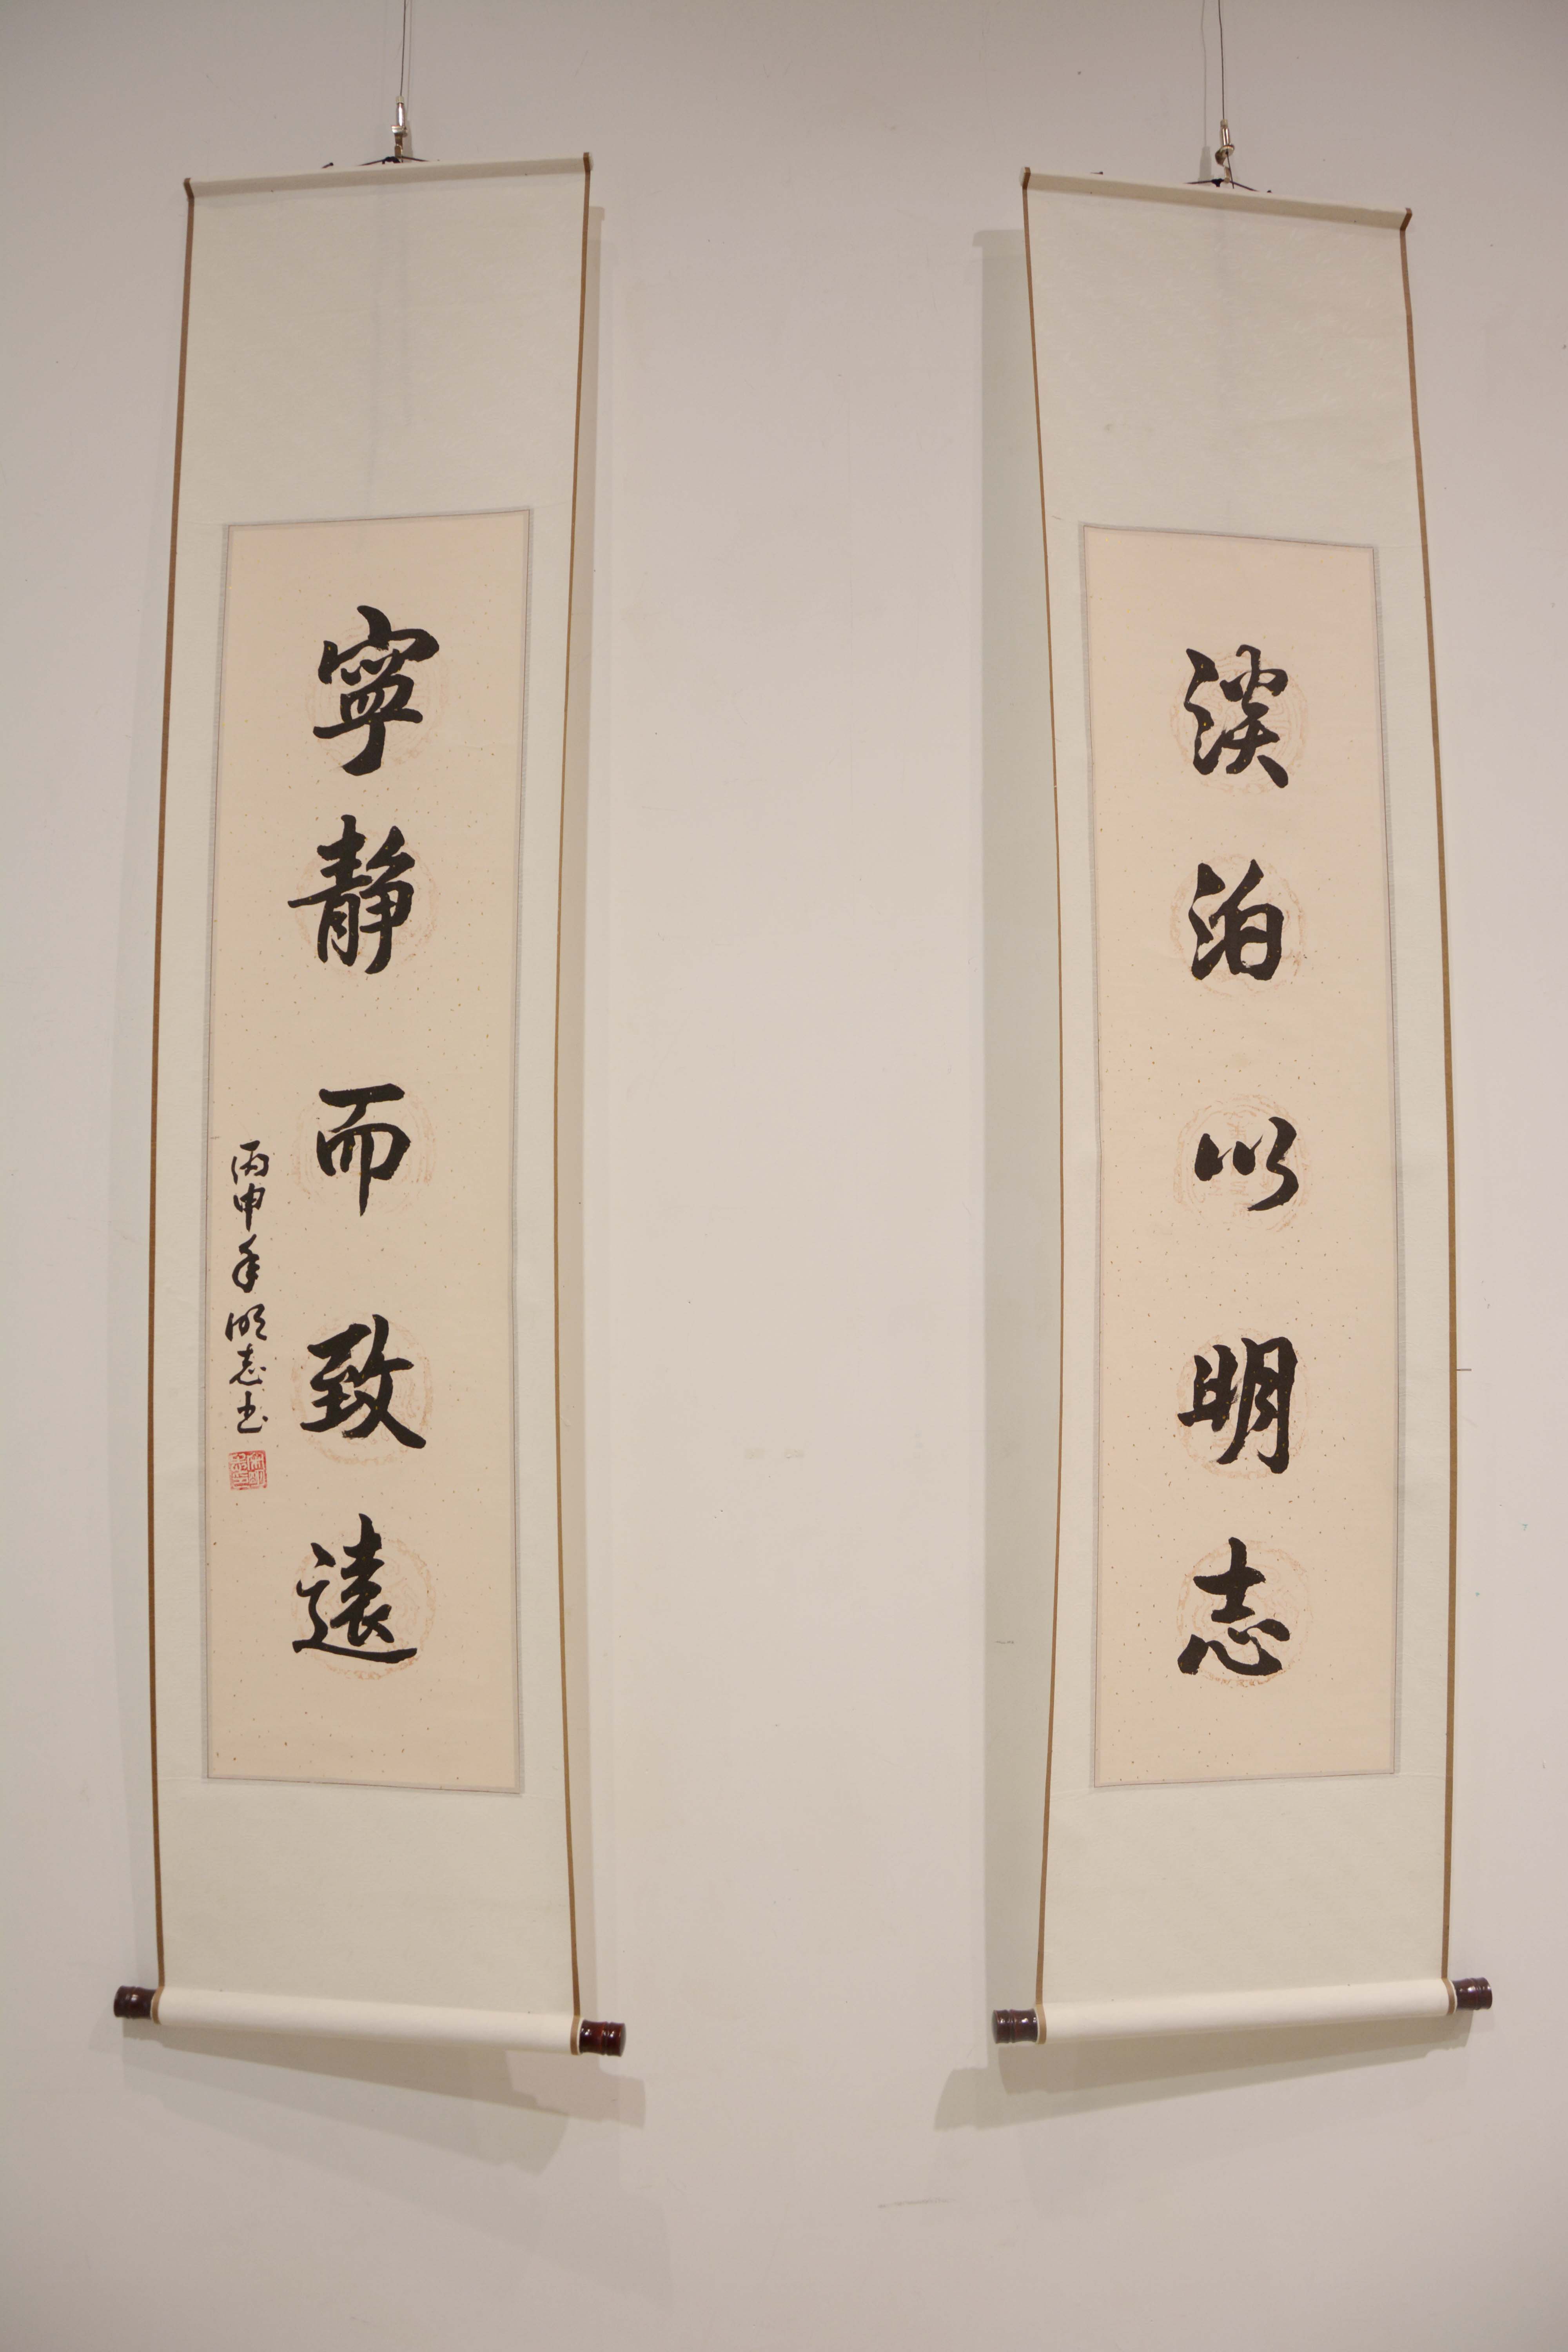 淡泊以明志
寧靜而致遠
丙申年明志书